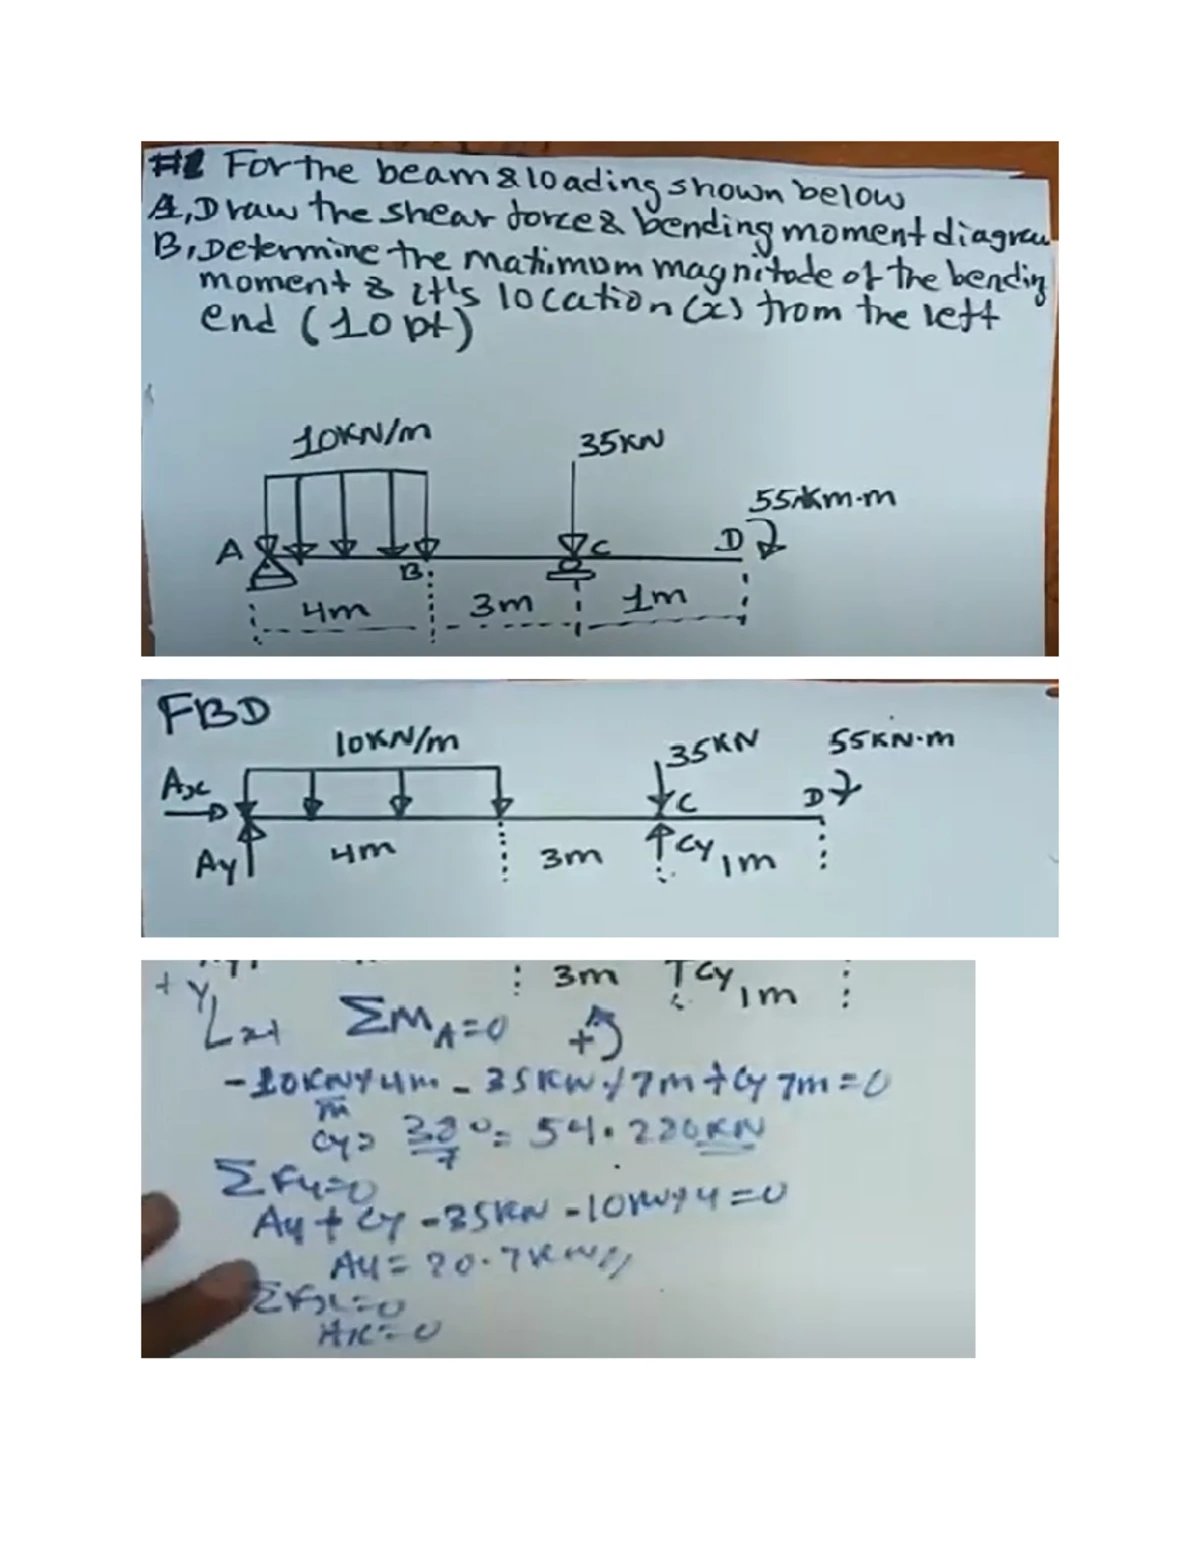 #1 For the beam & loading shown below
A, Draw the shear force & bending moment diagram
B, Determine the matimum magnitude of the bending
moment & it's location (x) from the left
end (10 pt)
10KN/m
35KN
55 Km.m
A
B
C
D
4m
3m
1m
FBD
10KN/m
35KN
55KN.m
Ax
C
D
Ay
4m
3m
Cy
1m
3m
Cy
1m
+y
x+
ΣMA=0
+
-10KN/m × 4m - 35KN × 7m + Cy 7m = 0
Cy = 380/7 = 54.
KN
ΣFy=0
Ay + Cy - 35KN - 10KN × 4 = 0
Ay = 20.7KN
ΣFx=0
Ax=0